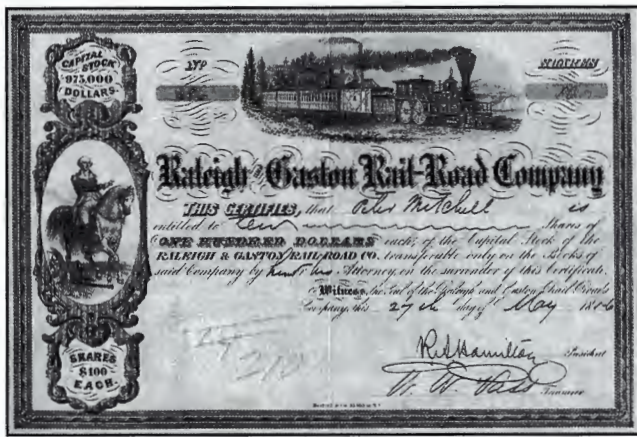 CAPITAL
STOCK
975,000
DOLLARS.
Nº
SHARES
Raleigh and Gaston Rail-Road Company
THIS CERTIFIES, that Peter Mitchell is
entitled to Ten Shares of
ONE HUNDRED DOLLARS each, of the Capital Stock of the
RALEIGH & GASTON RAIL-ROAD CO. transferable only on the Books of
said Company by him or his Attorney, on the surrender of this Certificate.
Witness, the Seal of the Raleigh and Gaston Rail Road
Company, this 27th day of May
President
Treasurer
SHARES
$100
EACH.